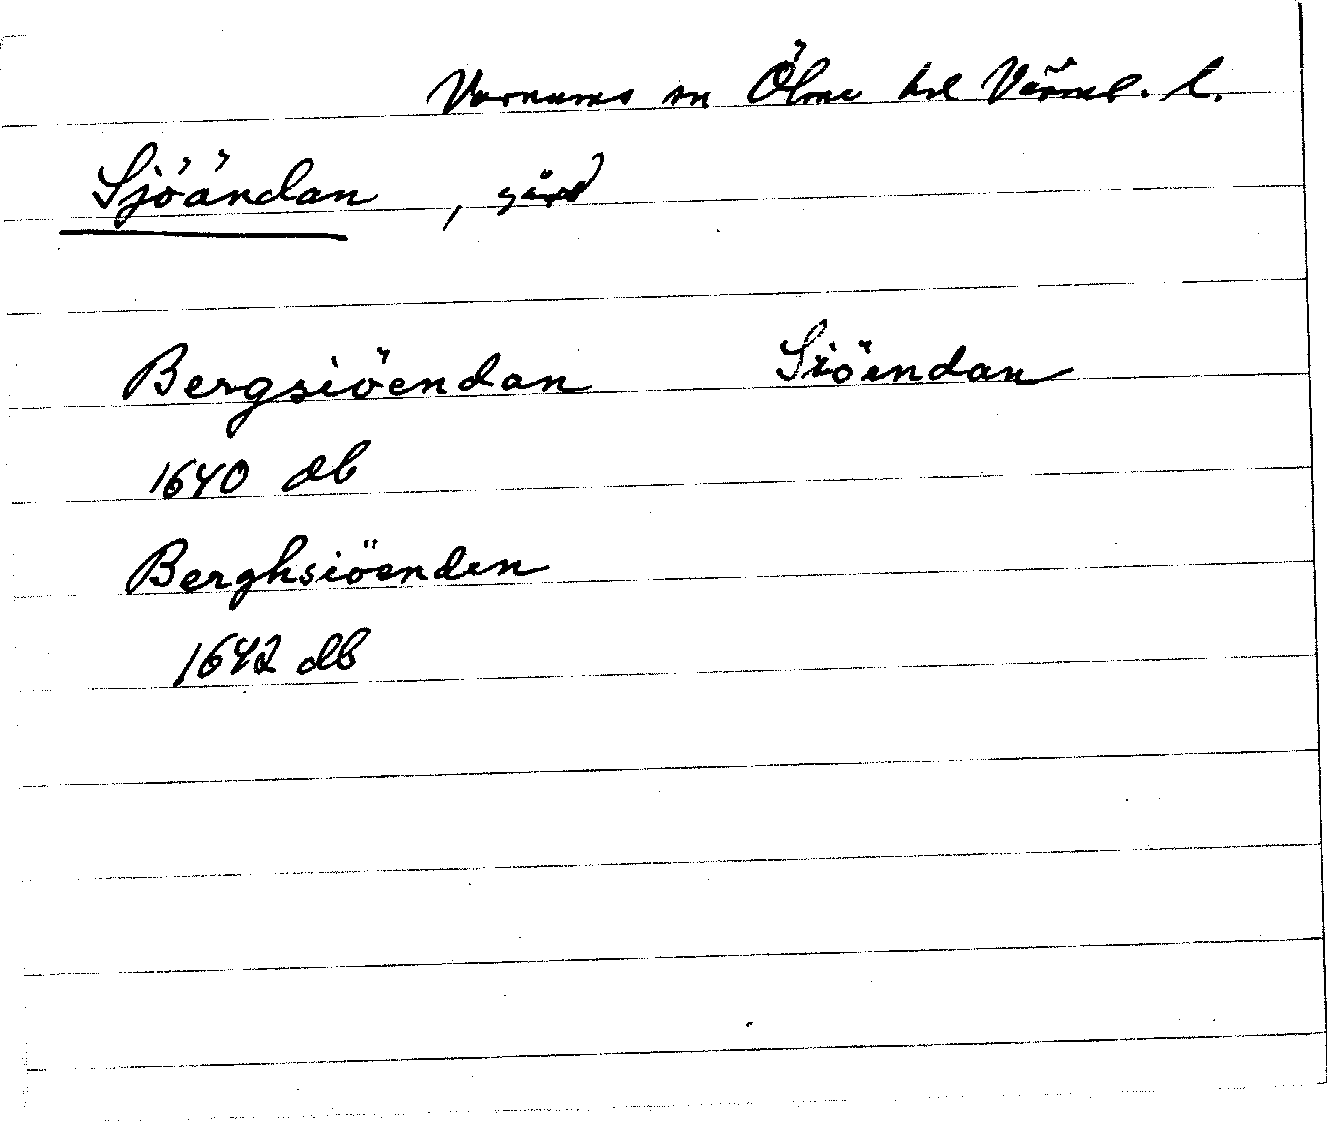 Varnums sn Ölme hd Värml. l.
Sjöändan, gård
Bergsiöendan Siöendan
1640 db
Berghsiöenden
1642 db